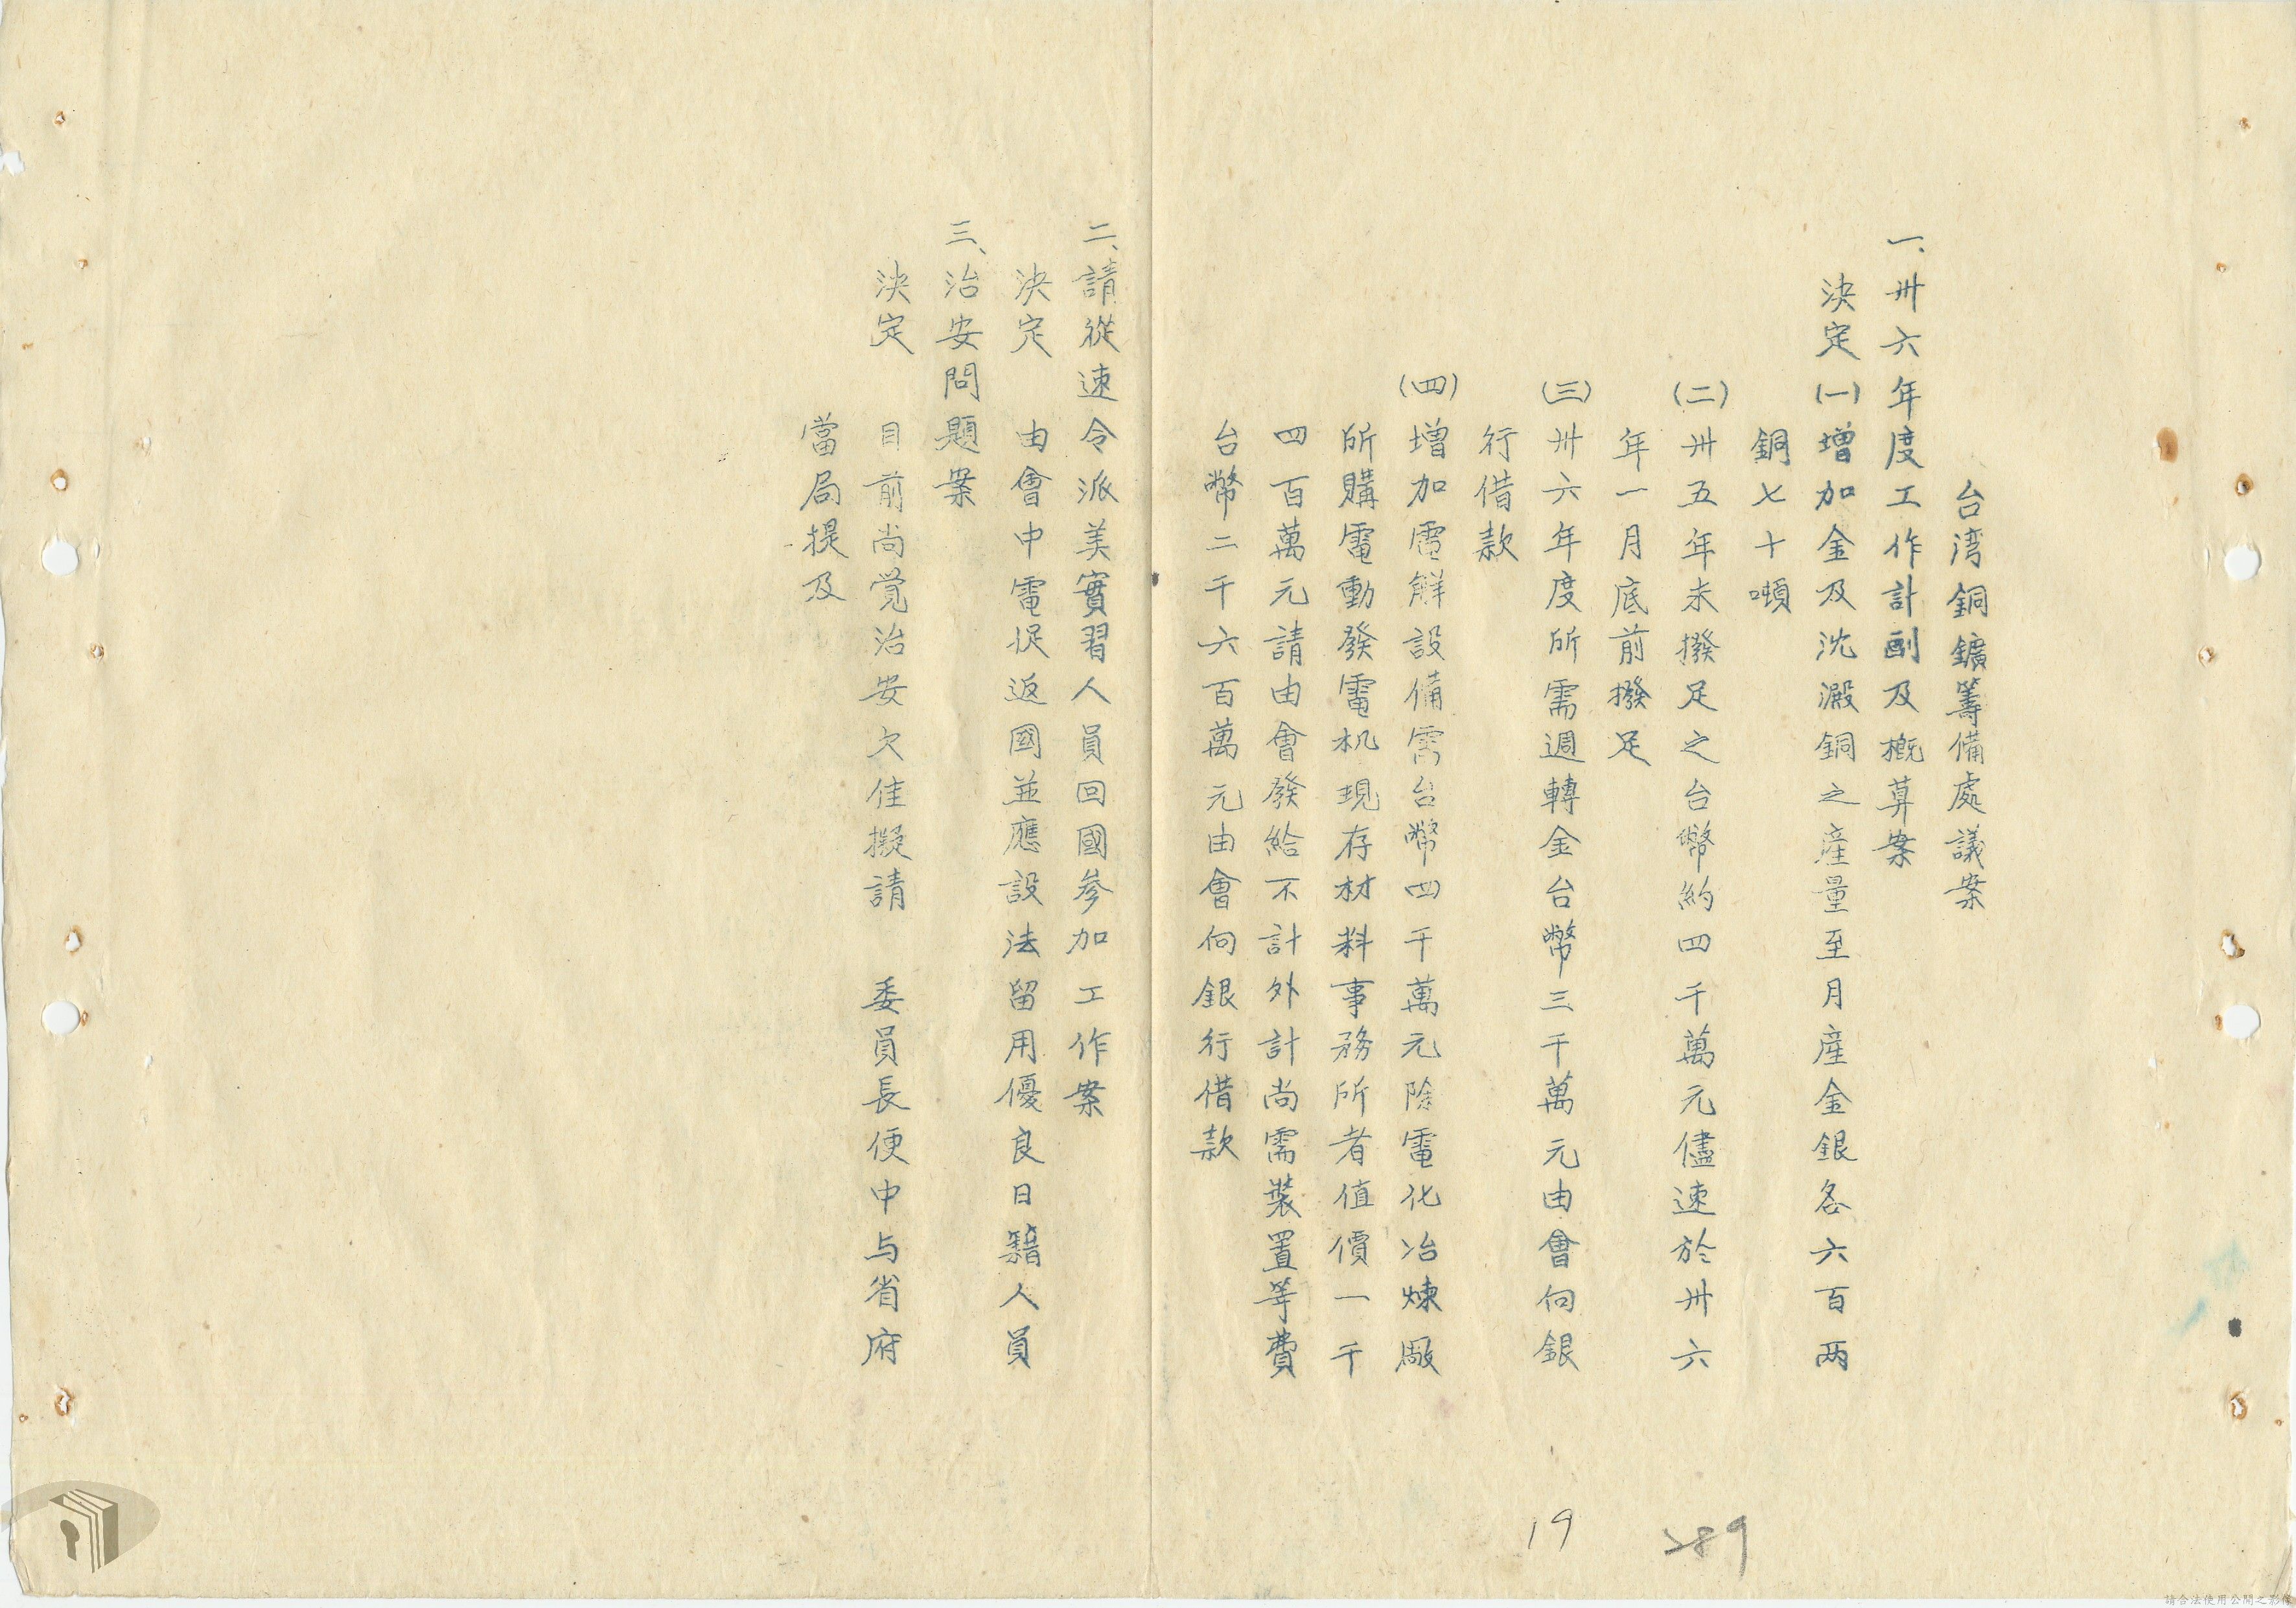 台湾銅鑛籌備處議案
一、卅六年度工作計劃及概算案
決定 (一)增加金及沈澱銅之產量至月產金銀各六百兩
銅七十噸
(二)卅五年未撥足之台幣約四千萬元儘速於卅六
年一月底前撥足
(三)卅六年度所需週轉金台幣三千萬元由會向銀
行借款
(四)增加電解設備需台幣四千萬元除電化冶煉廠
所購電動發電机現存材料事務所者值價一千
四百萬元請由會發給不計外計尚需裝置等費
台幣二千六百萬元由會向銀行借款
二、請從速令派美實習人員回國參加工作案
決定 由會申電促返國並應設法留用優良日籍人員
三、治安問題案
決定 目前尚覚治安欠佳擬請 委員長便中与省府
當局提及
19
289
請合法使用公開之影像